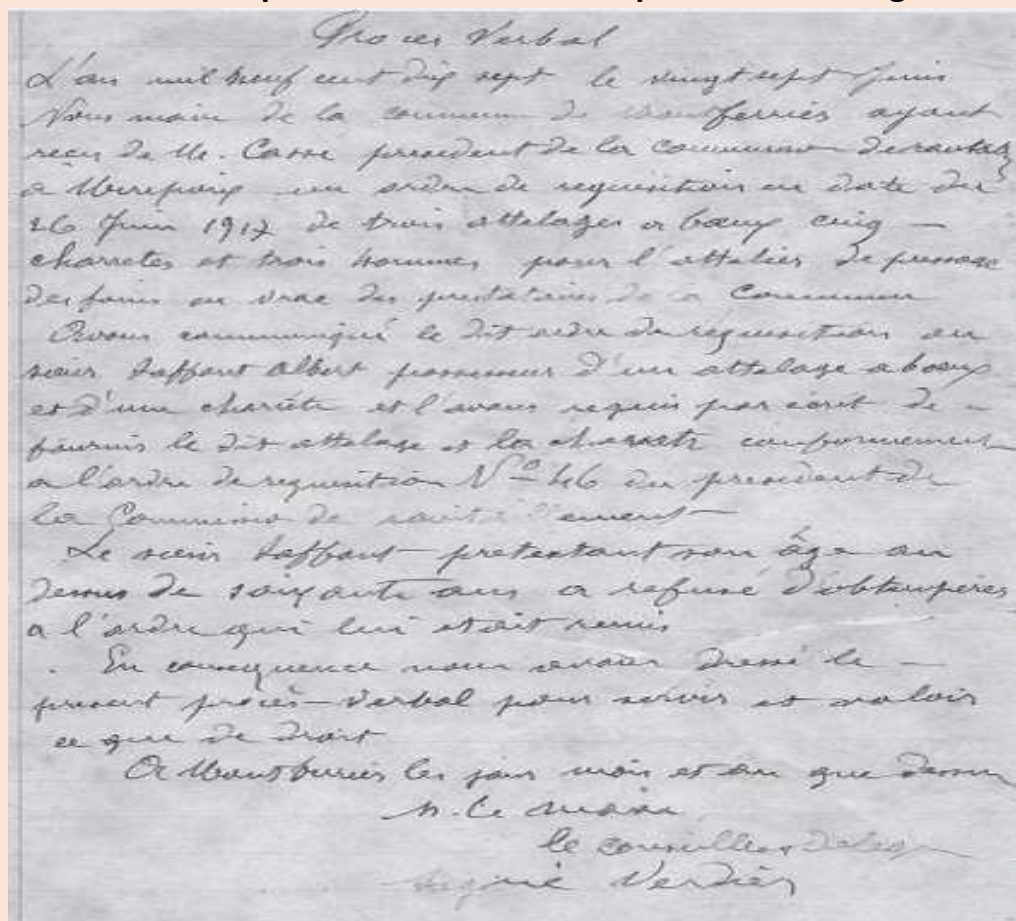 Proces Verbal
L'an mil neuf cent dix sept le vingt sept Juin
Nous maire de la commune de Montferrier ayant
reçu de M. Casse president de la commission de ravitail
a Mirepoix un ordre de requisition en date du
26 Juin 1917 de trois attelages a bœufs cinq —
charretes et trois hommes pour l'attelier de pressage
des foins en vrac des prestataires de la Commune
Avons communiqué le dit ordre de requisition au
sieur Laffont Albert possesseur d'un attelage a bœufs
et d'une charète et l'avons requis par ecrit de —
fournir le dit attelage et la charrete conformement
a l'ordre de requisition N° 46 du president de
la Commission de ravitaillement
Le sieur Laffont pretextant son âge au
dessus de soixante ans a refusé d'obtemperer
a l'ordre qui lui etait remis
. En consequence nous avons dressé le —
present procès-verbal pour servir et valoir
ce que de droit
A Montferrier les jour mois et an que dessus
p. le maire
le conseiller
Verdier